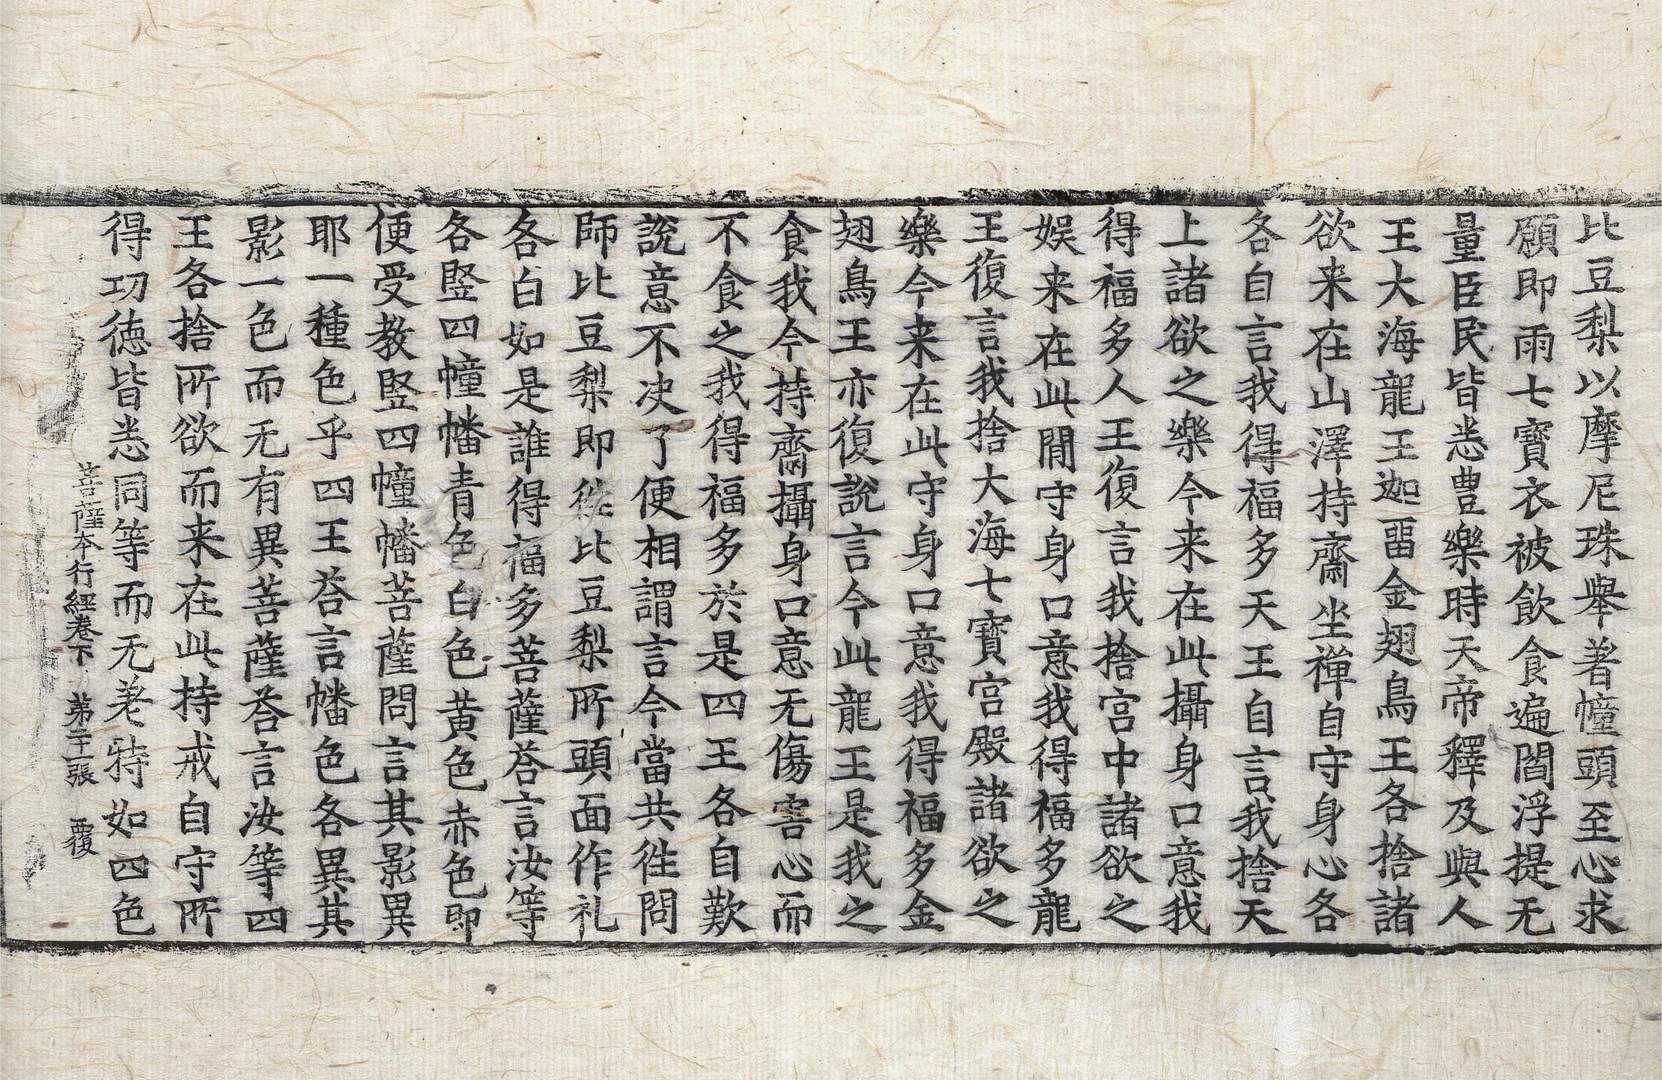 比豆梨以摩尼珠舉著幢頭至心求
願即雨七寶衣被飲食遍閻浮提无
量臣民皆悉豊樂時天帝釋及與人
王大海龍王迦畱金翅鳥王各捨諸
欲来在山澤持齋坐禪自守身心各
各自言我得福多天王自言我捨天
上諸欲之樂今来在此攝身口意我
得福多人王復言我捨宮中諸欲之
娛来在此閒守身口意我得福多龍
王復言我捨大海七寶宮殿諸欲之
樂今来在此守身口意我得福多金
翅鳥王亦復說言今此龍王是我之
食我今持齋攝身口意无傷害心而
不食之我得福多於是四王各自歎
說意不决了便相謂言今當共徃問
師比豆梨即從比豆梨所頭面作礼
各白如是誰得福多菩薩荅言汝等
各竪四幢幡青色白色黄色赤色即
便受教竪四幢幡菩薩問言其影異
耶一種色乎四王荅言幡色各異其
影一色而无有異菩薩荅言汝等四
王各捨所欲而来在此持戒自守所
得功徳皆悉同等而无差特如四色
菩薩本行經卷下 第二十一張 覆